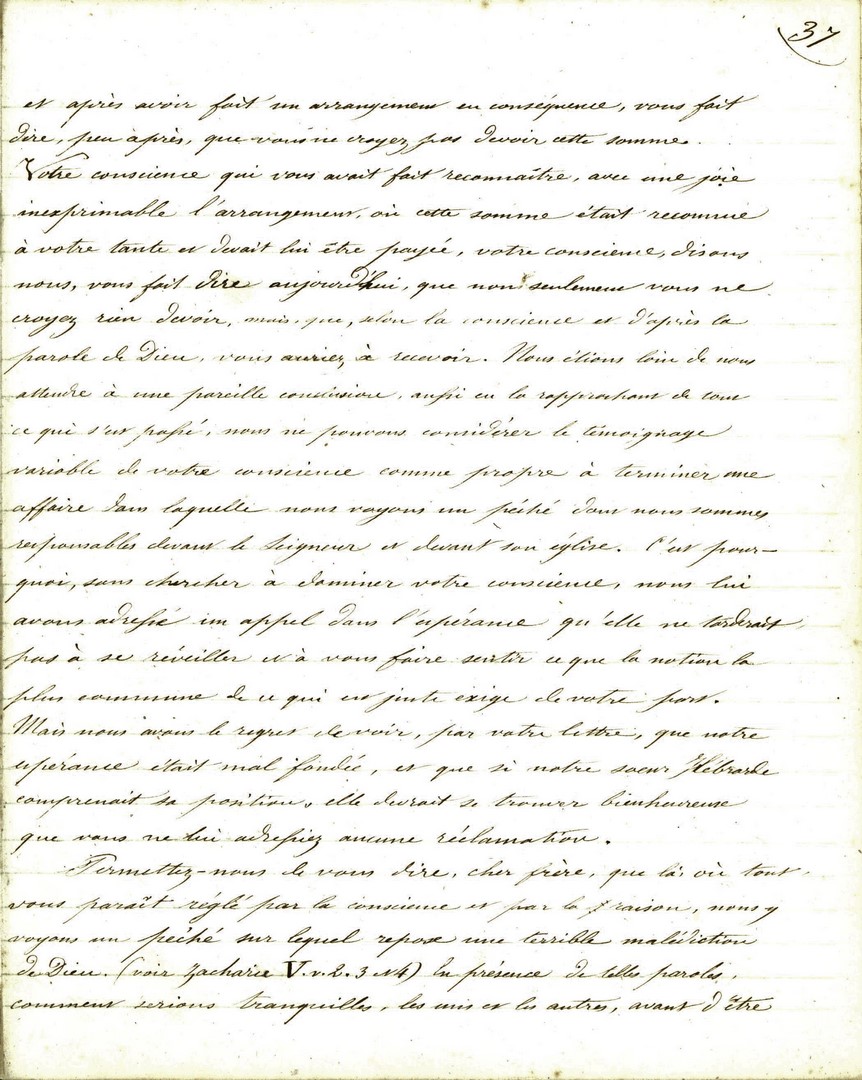 37
et après avoir fait un arrangement en conséquence, vous fait
dire, peu après, que vous ne croyez pas devoir cette somme.
Votre conscience qui vous avait fait reconnaître, avec une joie
inexprimable l'arrangement, où cette somme était reconnue
à votre tante et devait lui être payée, votre conscience, disons
nous, vous fait dire aujourd'hui, que non seulement vous ne
croyez rien devoir, mais, que, selon la conscience et d'après la
parole de Dieu, vous auriez, à recevoir. Nous étions loin de nous
attendre à une pareille conclusion, aussi en la rapprochant de tout
ce qui s'est passé, nous ne pouvons considérer le témoignage
variable de votre conscience comme propre à terminer une
affaire dans laquelle nous voyons un péché dont nous sommes
responsables devant le Seigneur et devant son église. C'est pour-
quoi, sans chercher à dominer votre conscience, nous lui
avons adressé un appel dans l'espérance qu'elle ne tarderait
pas à se réveiller et à vous faire sentir ce que la notion la
plus commune de ce qui est juste exige de votre part.
Mais nous avons le regret de voir, par votre lettre, que notre
espérance était mal fondée, et que si notre sœur Hébrarde
comprenait sa position, elle devrait se trouver bienheureuse
que vous ne lui adressiez aucune réclamation.
Permettez-nous de vous dire, cher frère, que là, où tout,
vous paraît réglé par la conscience et par la raison, nous y
voyons un péché sur lequel repose une terrible malédiction
de Dieu. (voir Zacharie V. v. 2. 3 et 4) En présence de telles paroles,
comment serions tranquilles, les uns et les autres, avant d'être